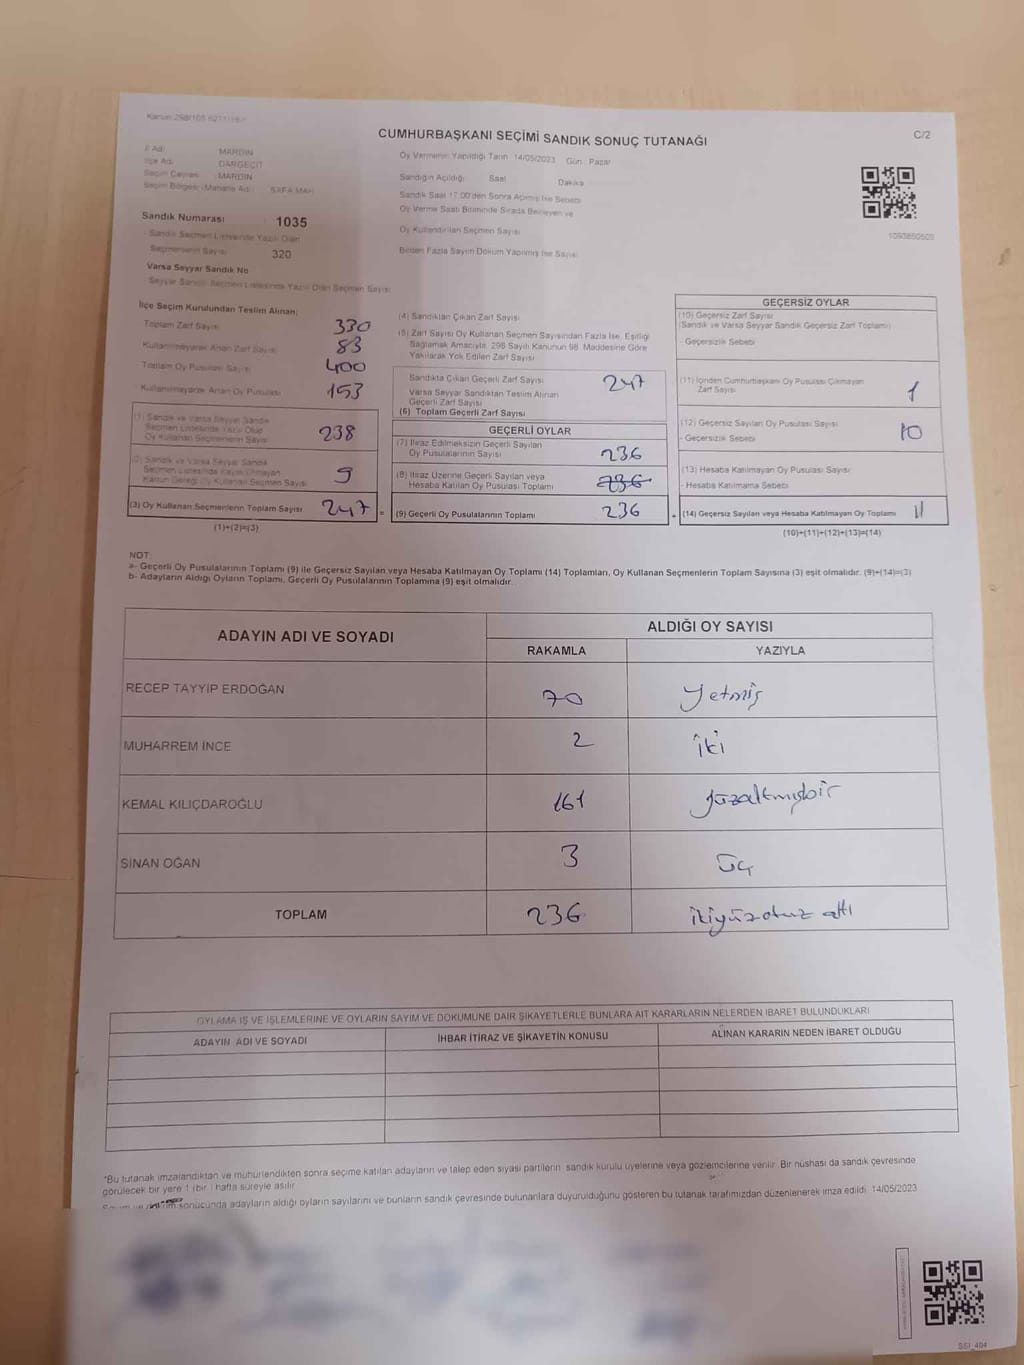 Kanun 298/105
CUMHURBAŞKANI SEÇİMİ SANDIK SONUÇ TUTANAĞI
C/2
İl Adı MARDİN
İlçe Adı DARGEÇİT
Seçim Çevresi MARDİN
Seçim Bölgesi (Mahalle Adı) SAFA MAH
Sandık Numarası 1035
Sandık Seçmen Listesinde Yazılı Olan
Seçmenlerin Sayısı 320
Varsa Seyyar Sandık No
Seyyar Sandık Seçmen Listesinde Yazılı Olan Seçmen Sayısı
Oy Vermenin Yapıldığı Tarih 14/05/2023 Gün Pazar
Sandığın Açıldığı Saat Dakika
Sandık Saat 17.00'den Sonra Açılmış İse Sebebi
Oy Verme Saati Bitiminde Sırada Bekleyen ve
Oy Kullandırılan Seçmen Sayısı
Birden Fazla Sayım Döküm Yapılmış İse Sayısı
1093860509
İlçe Seçim Kurulundan Teslim Alınan;
Toplam Zarf Sayısı 330
Kullanılmayarak Artan Zarf Sayısı 83
Toplam Oy Pusulası Sayısı 400
Kullanılmayarak Artan Oy Pusulası 153
(1) Sandık ve Varsa Seyyar Sandık
Seçmen Listelerinde Yazılı Olup
Oy Kullanan Seçmenlerin Sayısı 238
(2) Sandık ve Varsa Seyyar Sandık
Seçmen Listesinde Kayıtlı Olmayan
Kanun Gereği Oy Kullanan Seçmen Sayısı 9
(3) Oy Kullanan Seçmenlerin Toplam Sayısı 247 =
(1)+(2)=(3)
(4) Sandıktan Çıkan Zarf Sayısı
(5) Zarf Sayısı Oy Kullanan Seçmen Sayısından Fazla İse, Eşitliği
Sağlamak Amacıyla, 298 Sayılı Kanunun 98. Maddesine Göre
Yakılarak Yok Edilen Zarf Sayısı
Sandıkta Çıkan Geçerli Zarf Sayısı 247
Varsa Seyyar Sandıktan Teslim Alınan
Geçerli Zarf Sayısı
(6) Toplam Geçerli Zarf Sayısı
GEÇERLİ OYLAR
(7) İtiraz Edilmeksizin Geçerli Sayılan
Oy Pusulalarının Sayısı 236
(8) İtiraz Üzerine Geçerli Sayılan veya
Hesaba Katılan Oy Pusulası Toplamı 236
(9) Geçerli Oy Pusulalarının Toplamı 236 +
GEÇERSİZ OYLAR
(10) Geçersiz Zarf Sayısı
(Sandık ve Varsa Seyyar Sandık Geçersiz Zarf Toplamı)
- Geçersizlik Sebebi
(11) İçinden Cumhurbaşkanı Oy Pusulası Çıkmayan
Zarf Sayısı 1
(12) Geçersiz Sayılan Oy Pusulası Sayısı
- Geçersizlik Sebebi 10
(13) Hesaba Katılmayan Oy Pusulası Sayısı
- Hesaba Katılmama Sebebi
(14) Geçersiz Sayılan veya Hesaba Katılmayan Oy Toplamı 11
(10)+(11)+(12)+(13)=(14)
NOT
a- Geçerli Oy Pusulalarının Toplamı (9) ile Geçersiz Sayılan veya Hesaba Katılmayan Oy Toplamı (14) Toplamları, Oy Kullanan Seçmenlerin Toplam Sayısına (3) eşit olmalıdır. (9)+(14)=(3)
b- Adayların Aldığı Oyların Toplamı, Geçerli Oy Pusulalarının Toplamına (9) eşit olmalıdır.
ADAYIN ADI VE SOYADI
ALDIĞI OY SAYISI
RAKAMLA YAZIYLA
RECEP TAYYİP ERDOĞAN 70 yetmiş
MUHARREM İNCE 2 iki
KEMAL KILIÇDAROĞLU 161 yüzaltmışbir
SİNAN OĞAN 3 üç
TOPLAM 236 ikiyüzotuz altı
OYLAMA İŞ VE İŞLEMLERİNE VE OYLARIN SAYIM VE DÖKÜMÜNE DAİR ŞİKAYETLERLE BUNLARA AİT KARARLARIN NELERDEN İBARET BULUNDUKLARI
ADAYIN ADI VE SOYADI İHBAR İTİRAZ VE ŞİKAYETİN KONUSU ALINAN KARARIN NEDEN İBARET OLDUĞU
*Bu tutanak imzalandıktan ve mühürlendikten sonra seçime katılan adayların ve talep eden siyasi partilerin sandık kurulu üyelerine veya gözlemcilerine verilir. Bir nüshası da sandık çevresinde
görülecek bir yere 1 (bir) hafta süreyle asılır.
sonucunda adayların aldığı oyların sayılarını ve bunların sandık çevresinde bulunanlara duyurulduğunu gösteren bu tutanak tarafımızdan düzenlenerek imza edildi. 14/05/2023
SSI_404